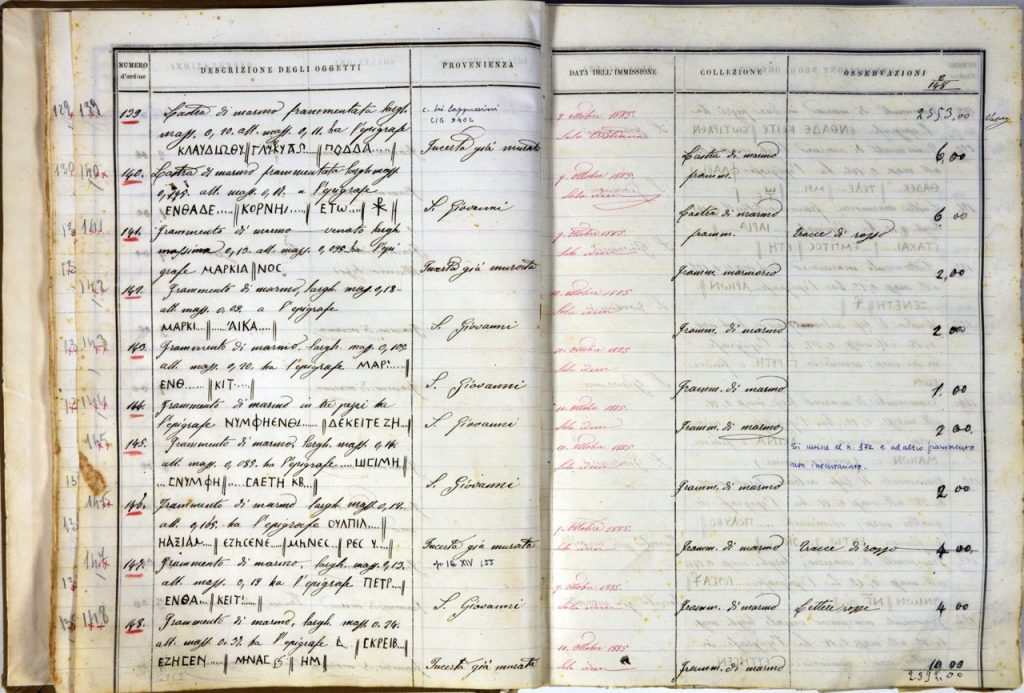 NUMERO d'ordine
DESCRIZIONE DEGLI OGGETTI
PROVENIENZA
DATA DELL'IMMISSIONE
COLLEZIONE
OSSERVAZIONI
2353,00
139 139
139
Lastra di marmo frammentata largh.
mass. 0,20. alt. mass. 0,11. ha l'epigrafe
ΚΛΑΥΔΙΩΘΥ ‖ ΓΛΥΚΥΔΩ.. ‖ ΠΟΔΔΔ....‖
c. dei Cappuccini
CIG 9402
Incerta già murata
9. ottobre 1885.
Lastra di marmo
framm.
6,00
140.
140.
Lastra di marmo frammentata largh. mass.
0,145. alt. mass. 0,11. a l'epigrafe
ΕΝΘΑΔΕ.... ‖ ΚΟΡΝΗΙ.... ‖ ΕΤΩ.... ‖ ☧ ‖
S. Giovanni
9. ottobre 1885.
Sala idem
Lastra di marmo
framm.
6 00
141.
141.
Frammento di marmo venato largh.
massima 0,13. alt. mass. 0,095. ha l'epi
grafe ΜΑΡΚΙΑ ‖ ΝΟΣ
Incerta già murata
9. ottobre 1885.
Sala idem
Framm. marmoreo
tracce di rosso
2,00
142
142.
Frammento di marmo, largh. mass. 0,13-
alt. mass. 0,09. a l'epigrafe
ΜΑΡΚΙ.... ‖ ....ΑΙΚΑ.... ‖
S. Giovanni
11. ottobre 1885.
Sala idem
Framm. di marmo
2 00
143
143.
Frammento di marmo. largh. mass. 0,105.
alt. mass. 0,20. ha l'epigrafe ΜΑΡ.
ΕΝΘ.... ‖ ΚΙΤ.... ‖
S. Giovanni
11. ottobre 1885.
Sala idem
Framm. di marmo
1,00
144
144.
Frammento di marmo in tre pezzi ha
l'epigrafe ΝΥΜΦΗΕΝΘΙ.... ‖ ΔΕΚΕΙΤΕ ΖΗ....‖
S. Giovanni
11. ottobre 1885.
Sala idem
Framm. di marmo
2 00.
Si unisce al n. 172 e ad altro frammento
non inventariato.
145
145.
Frammento di marmo, largh. mass. 0,14.
alt. mass. 0,085. ha l'epigrafe .... ШCIMH
...CΝΥΜΦΗ ‖ CΑΕΤΗ ΚΒ...‖
S. Giovanni
11. ottobre 1885.
Sala idem
Framm. di marmo
2 00
146
146.
Frammento di marmo largh. mass. 0,12.
alt. 0,165. ha l'epigrafe ΟΥΛΠΙΛ....
ΗΑΞΙΑΝ....‖ ΕΖΗCΕΝΕ...‖ΜΗΝΕC...‖ΡΕC Υ....‖
Incerta già murata
9. ottobre 1885.
Sala idem
Framm. di marmo
tracce di rosso
4 00
147
147.
Frammento di marmo, largh. mass. 0,13.
alt. mass. 0,18 ha l'epigrafe ΠΕΤΡ...
ΕΝΘΑ... ‖ ΚΕΙΤ....‖
IG XIV 155
S. Giovanni
9. ottobre 1885.
Sala idem
Framm. di marmo
Lettere rosse
4 00
148
148.
Frammento di marmo, largh. mass. 0,24.
alt. mass. 0,31. ha l'epigrafe L ‖ CΚΡΕΙΒ...
ΕΖΗCΕΝ....‖ ΜΝΑC ‖ ΗΜ ‖
Incerta già murata
9. ottobre 1885.
Sala idem
Framm. di marmo
10 00
2392.00